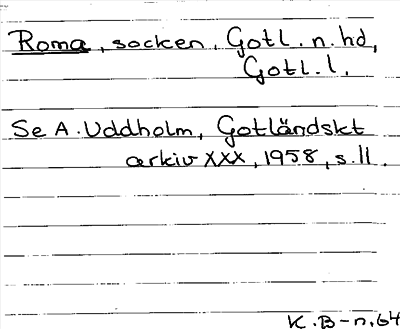 Roma, socken, Gotl. n. hd,
Gotl. l.
Se A. Uddholm, Gotländskt
arkiv XXX, 1958, s. 11.
K. B-n. 64